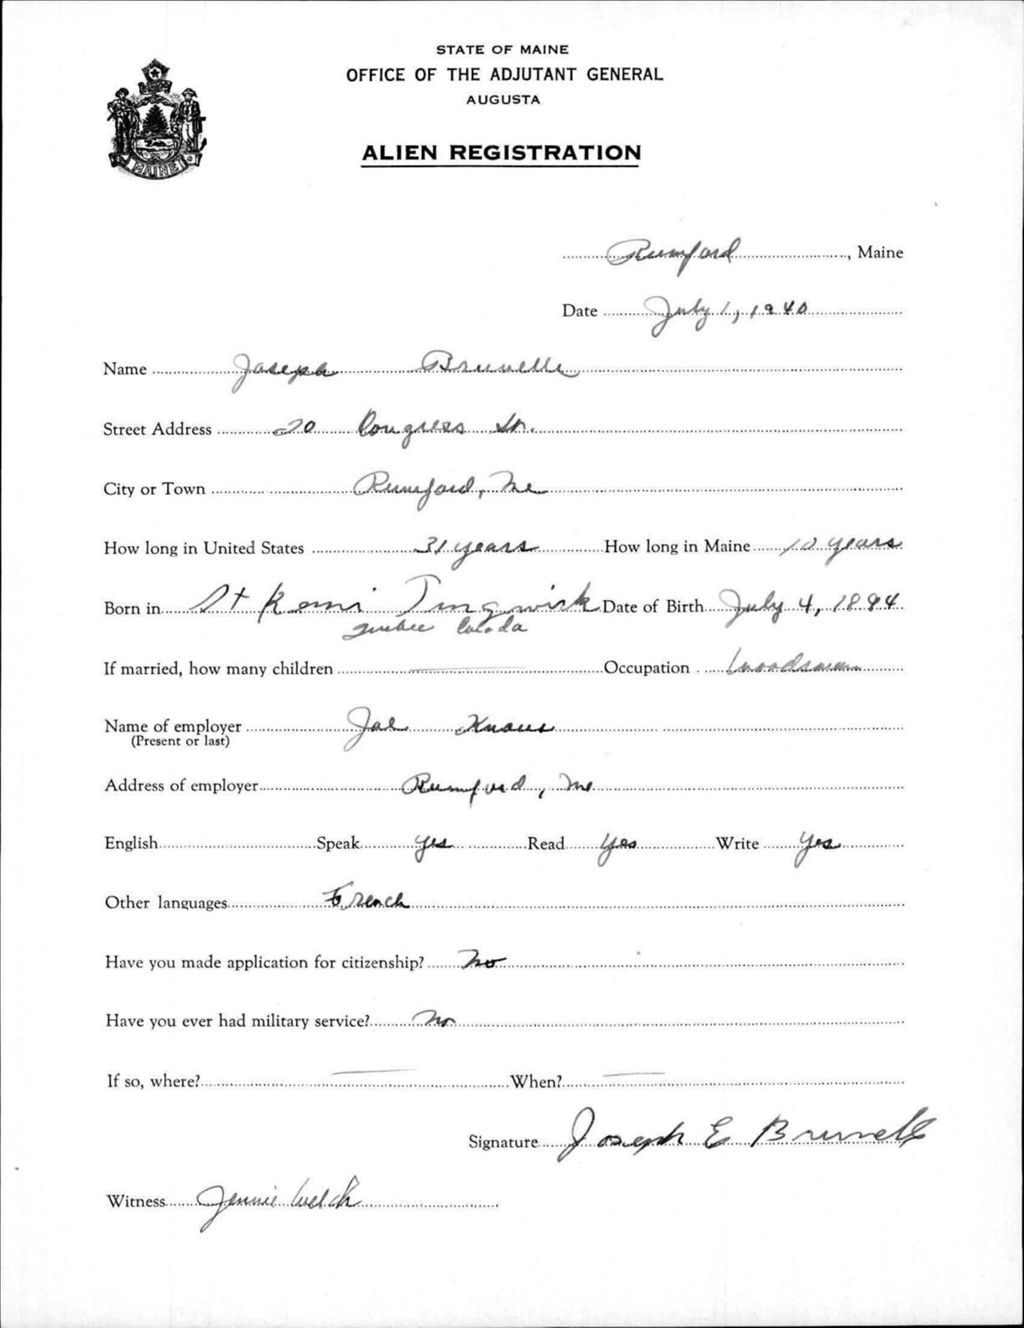 STATE OF MAINE
OFFICE OF THE ADJUTANT GENERAL
AUGUSTA
ALIEN REGISTRATION
MAINE
Rumford, Maine
Date July 1, 1940
Name Joseph Brunelle
Street Address 20 Congress St.
City or Town Rumford, Me
How long in United States 31 years How long in Maine 10 years
Born in St Remi Tingwick Date of Birth July 4, 1894
Quebec Canada
If married, how many children Occupation Woodsman
Name of employer Joe
(Present or last)
Address of employer Rumford, Me
English Speak yes Read yes Write yes
Other languages French
Have you made application for citizenship? No
Have you ever had military service? No
If so, where? When?
Signature Joseph E Brunelle
Witness Jennie Welch